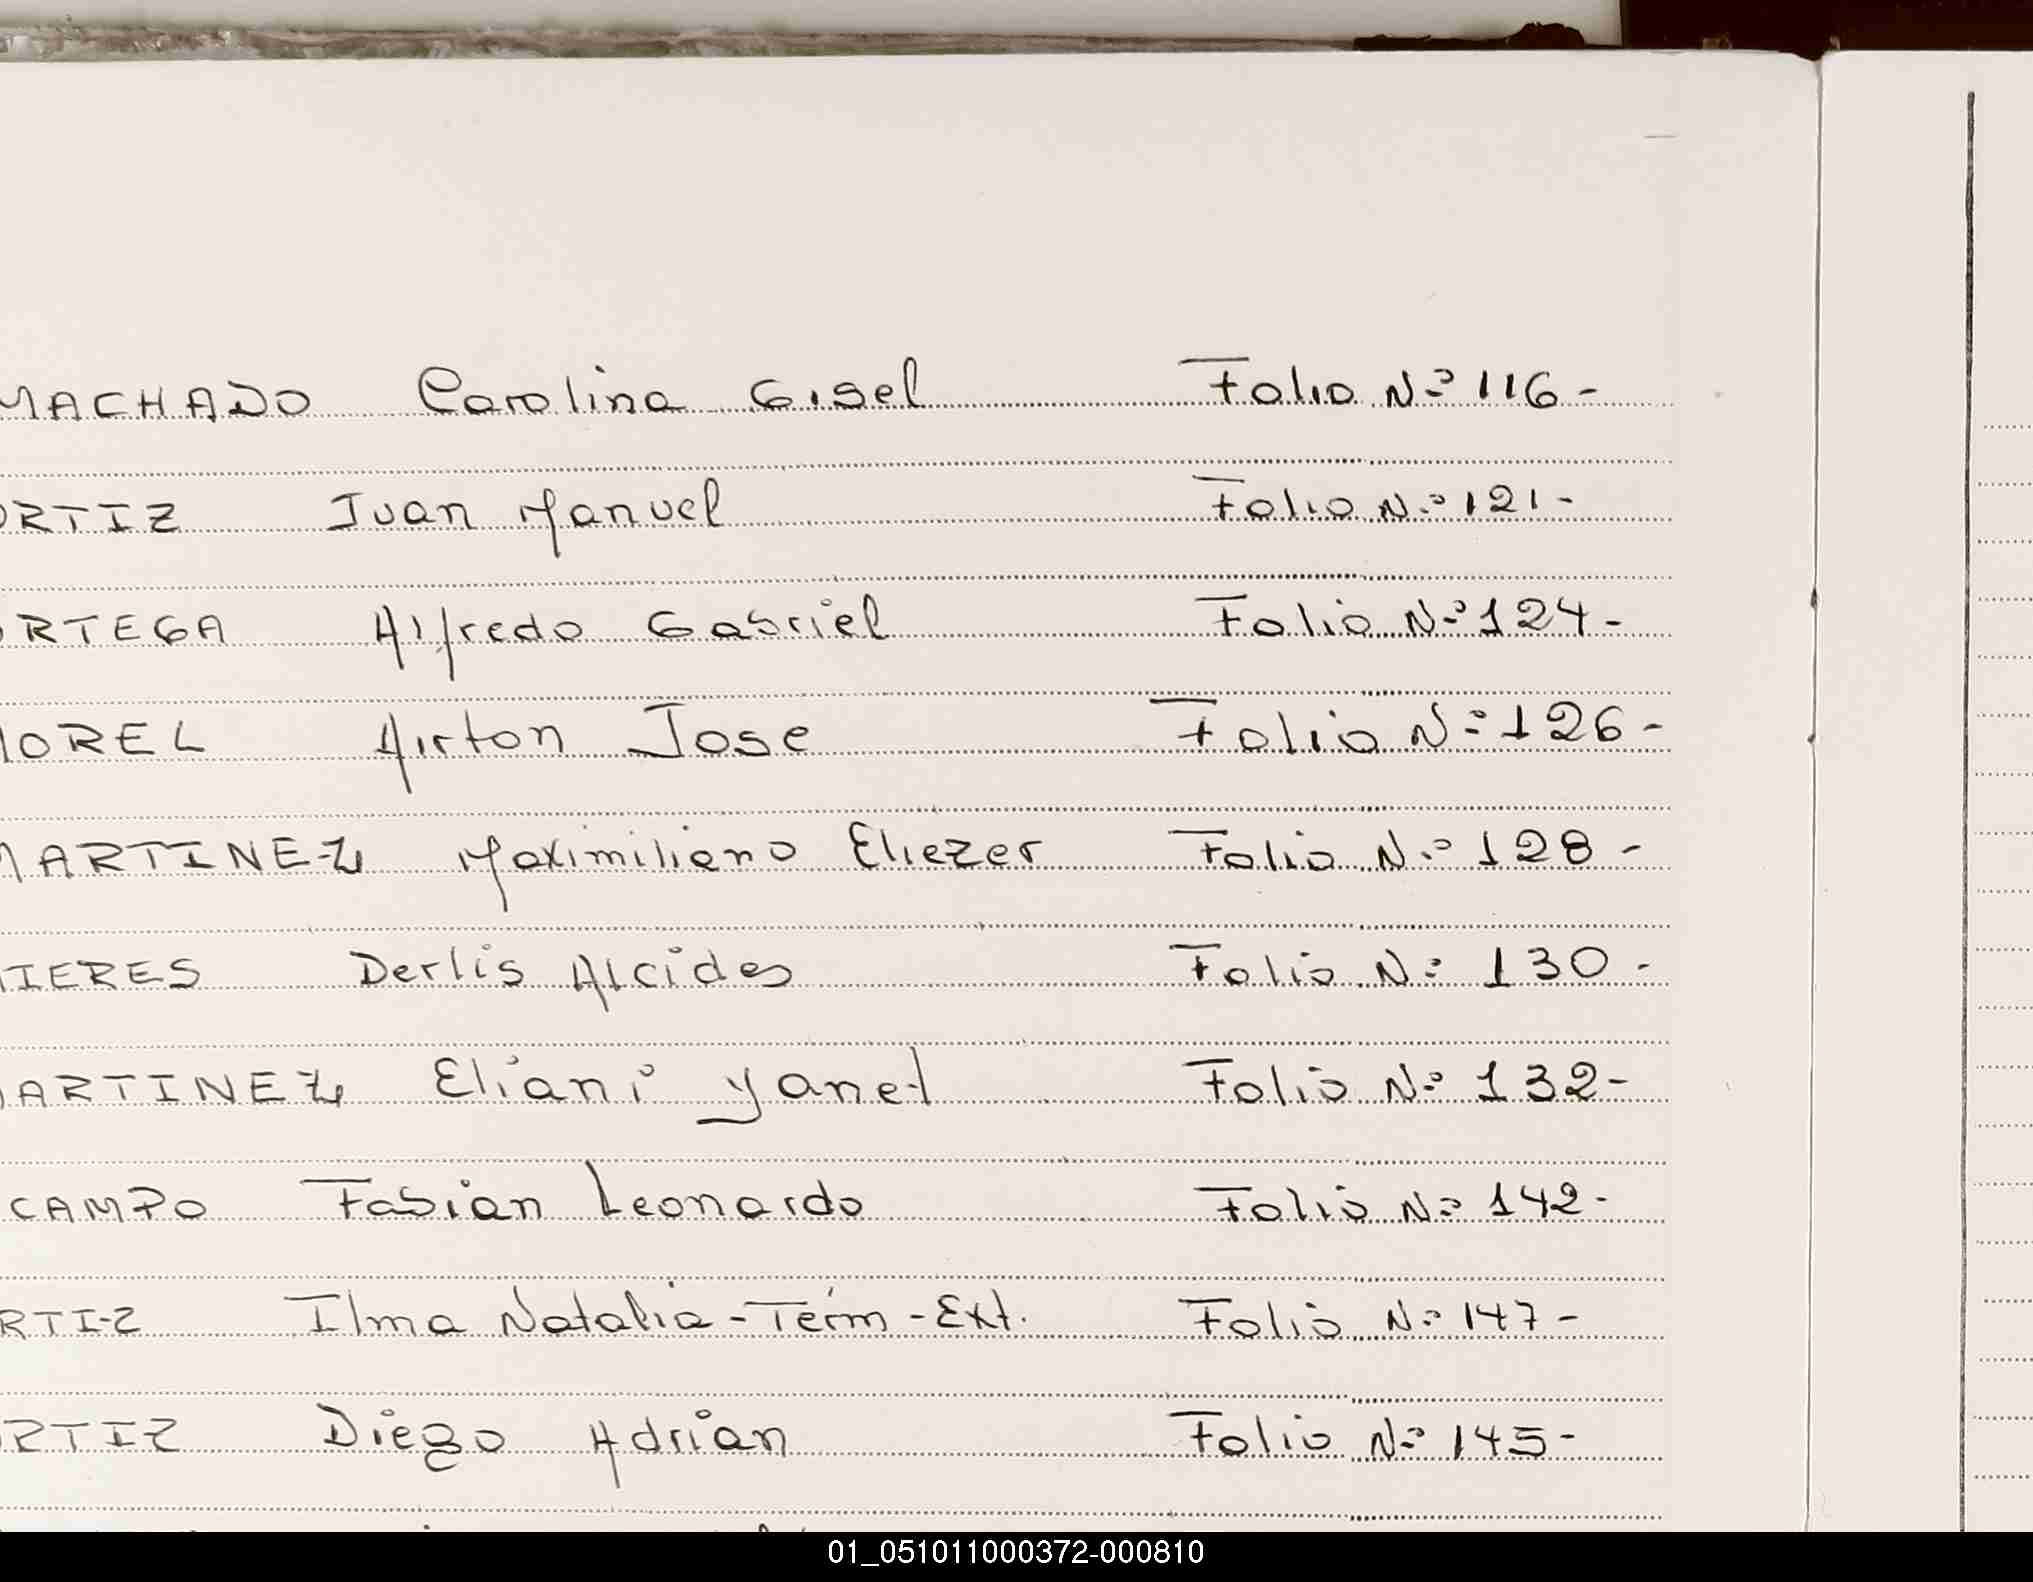 MACHADO Carolina Gisel Folio Nº 116-
ORTIZ Juan Manuel Folio Nº 121-
ORTEGA Alfredo Gabriel Folio Nº 124-
MOREL Airton Jose Folio Nº 126-
MARTINEZ Maximiliano Eliezer Folio Nº 128-
IERES Derlis Alcides Folio Nº 130-
MARTINEZ Eliani Yanet Folio Nº 132-
CAMPO Fabian Leonardo Folio Nº 142-
RTIZ Ilma Natalia-Term-Ext. Folio Nº 147-
RTIZ Diego Adrian Folio Nº 145-
01_051011000372-000810